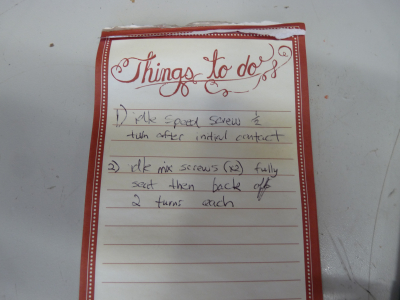 Things to do
1) idle speed screw ½
turn after initial contact
2) idle mix screws (x2) fully
seat then back off
2 turns each